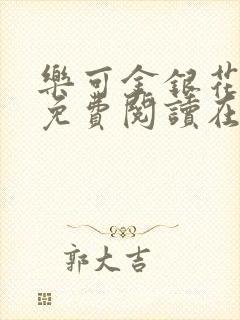 樂可金銀花
免費閱讀在
郭大吉